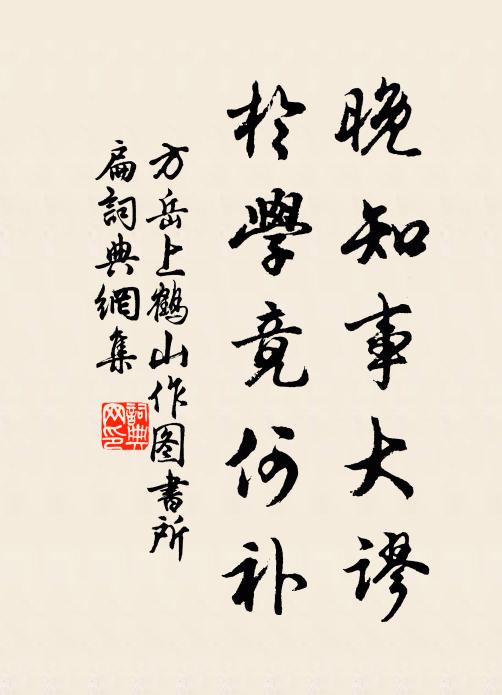 晚知事大谬
於學竟何补
方岳上鶴山作图書所
扁詞典網集
詞典
网印